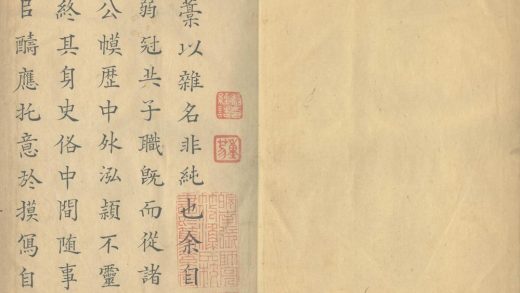 藁以雜名非純也余自
弱冠共子職既而從諸
公幙歷中外泓頴不靈
終其身史俗中間隨事
醻應托意於摸寫自